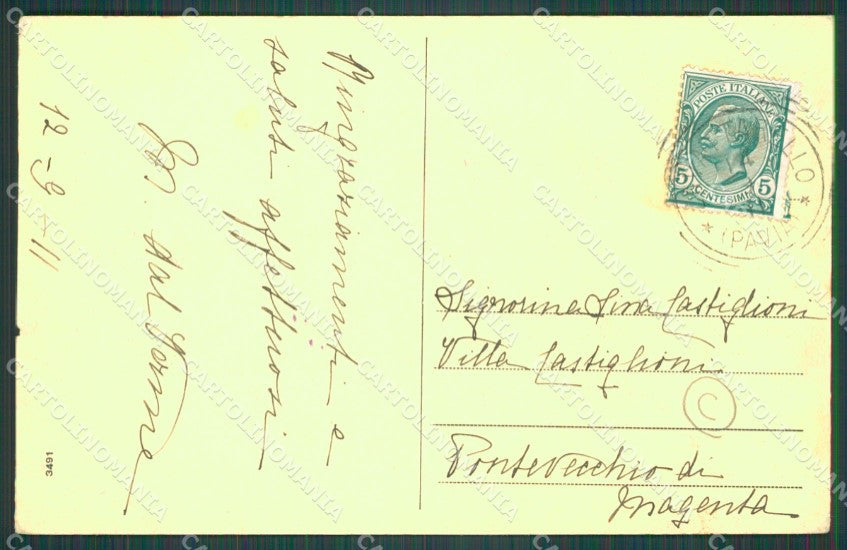 Ringraziamenti e
saluti affettuosi
E. Dal Verme
12-9-11
3491
POSTE ITALIANE
5 CENTESIMI 5
LLO
* (PAVIA) *
Signorina Lina Castiglioni
Villa Castiglioni
C
Pontevecchio di
Magenta
CARTOLINOMANIA